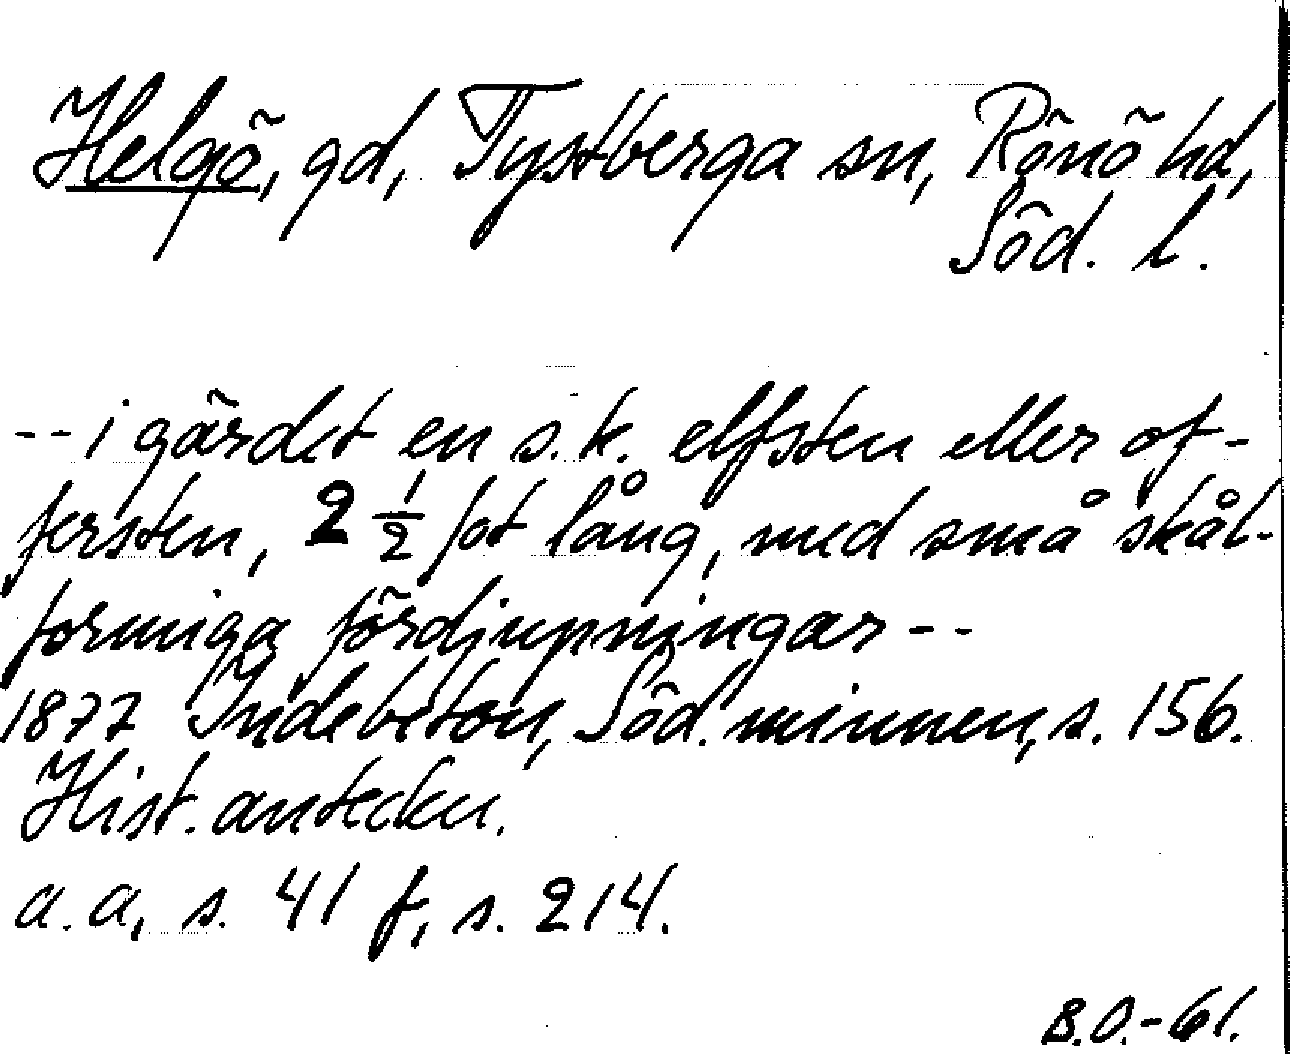 Helgö, gd, Tystberga sn, Rönö hd,
Söd. l.
-- i gärdet en s.k. elfsten eller of-
fersten, 2 1/2 fot lång, med små skål-
formiga fördjupningar --
1877 Indebetou, Söd. minnen, s. 156.
Hist. anteckn.
a. a, s. 41 f, s. 214.
B.O.-61.